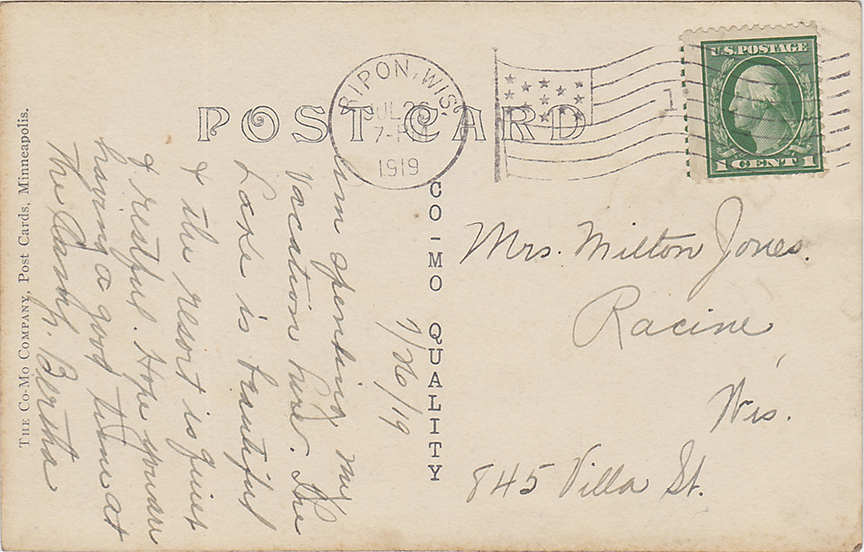 THE CO-MO COMPANY, Post Cards, Minneapolis.
POST CARD
RIPON, WIS.
JUL 26
7-PM
1919
1
U.S. POSTAGE
1 CENT 1
CO-MO QUALITY
7/26/19
Am spending my
vacation here. The
Lake is beautiful
& the resort is quiet
& restful. Hope you are
having a good time at
the Camp. Bertha
Mrs. Milton Jones.
Racine
Wis.
845 Villa St.